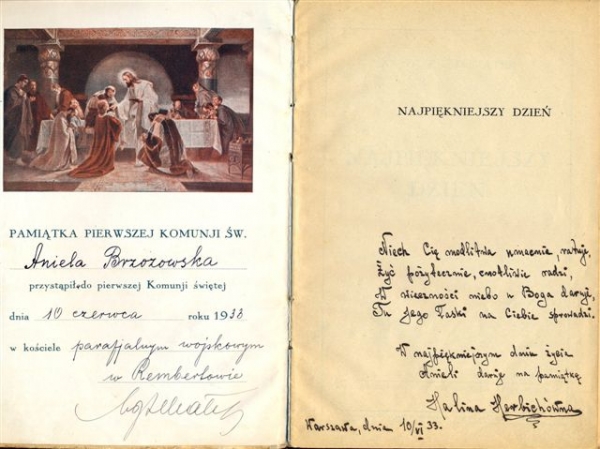 PAMIĄTKA PIERWSZEJ KOMUNJI ŚW.
Aniela Brzozowska
przystąpiłdo pierwszej Komunji świętej
dnia 10 czerwca roku 1933
w kościele parafjalnym wojskowym
w Rembertowie
NAJPIĘKNIEJSZY DZIEŃ
Niech Cię modlitwa umacnia, ratuje,
Żyć pożytecznie, cnotliwie radzi,
W wieczności niebo u Boga
Tu Jego Łaski na Ciebie sprowadzi.
W najpiękniejszym dniu życia
Anieli daruje na pamiątkę
Halina Herbichówna
Warszawa, dnia 10/VI 33.